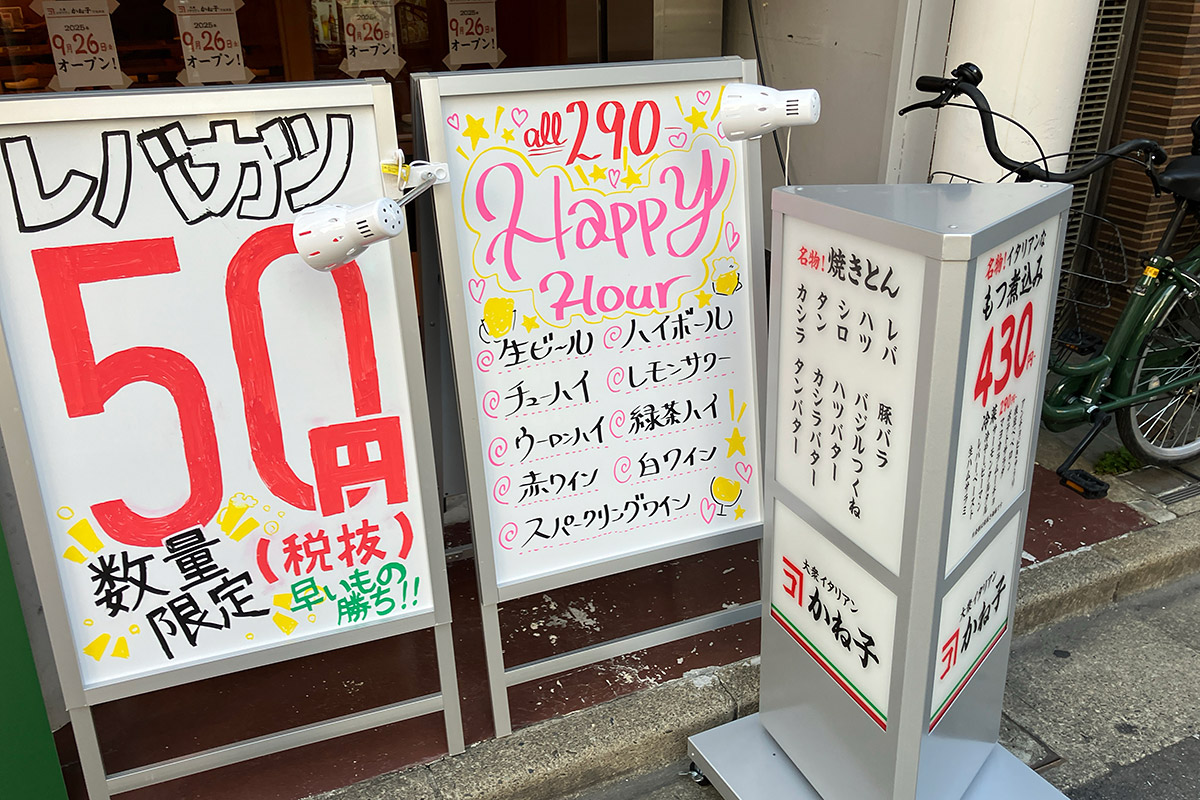 かね子
2025年
9月26日
オープン!
2025年
9月26日
オープン!
2025年
9月26日
オープン!
2025年
9月26日
オープン!
レバカツ
50円
(税抜)
数量
限定
早いもの
勝ち!!
all 290
Happy
Hour
生ビール ハイボール
チューハイ レモンサワー
ウーロンハイ 緑茶ハイ
赤ワイン 白ワイン
スパークリングワイン
名物!焼きとん
レバ 豚バラ
ハツ バジルつくね
シロ ハツバター
タン カシラバター
カシラ タンバター
大衆イタリアン
かね子
名物!イタリアンな
もつ煮込み
430円
冷菜 290円
大衆イタリアン
かね子